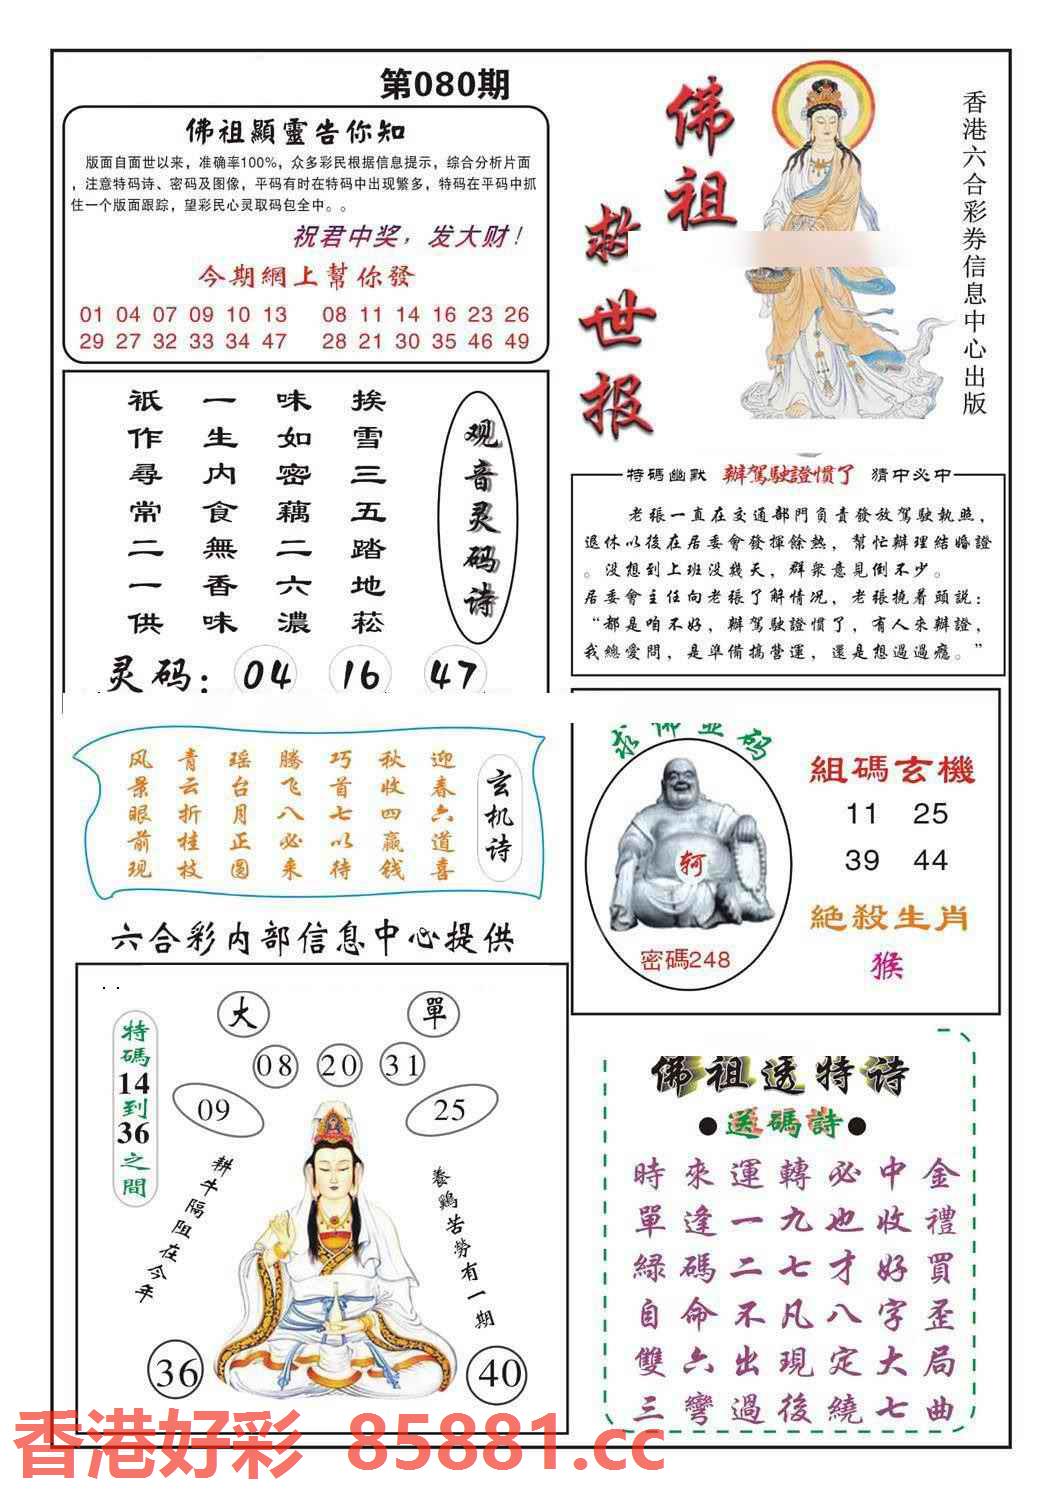 第080期
佛祖顯靈告你知
版面自面世以来，准确率100%，众多彩民根据信息提示，综合分析片面
，注意特码诗、密码及图像，平码有时在特码中出现繁多，特码在平码中抓
住一个版面跟踪，望彩民心灵取码包全中。。
祝君中奖，发大财！
今期網上幫你發
01 04 07 09 10 13 08 11 14 16 23 26
29 27 32 33 34 47 28 21 30 35 46 49
佛祖
救世报
香港六合彩券信息中心出版
观音灵码诗
挨雪三五踏地菘
味如密藕二六濃
一生内食無香味
祇作尋常二一供
灵码：04 16 47
特碼幽默 辦駕駛證慣了 猜中必中
老張一直在交通部門負責發放駕駛執照，
退休以後在居委會發揮餘熱，幫忙辦理結婚證
。没想到上班没幾天，群衆意見倒不少。
居委會主任向老張了解情况，老張撓着頭説：
“都是咱不好，辦駕駛證慣了，有人來辦證，
我總愛問，是準備搞營運，還是想過過癮。”
玄机诗
迎春六道喜
秋收四赢钱
巧首七以待
腾飞八必来
瑶台月正圆
青云折桂枝
风景眼前现
六合彩内部信息中心提供
密碼248
組碼玄機
11 25
39 44
絕殺生肖
猴
特碼14到36之間
大 單
08 20 31
09 25
耕牛隔阻在今年
養鷄苦勞有一期
36 40
佛祖透特诗
●送碼詩●
時來運轉必中金
單逢一九也收禮
緑碼二七才好買
自命不凡八字歪
雙六出現定大局
三彎過後繞七曲
香港好彩 85881.cc